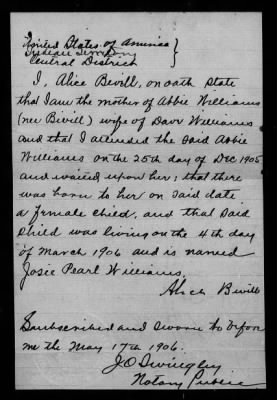 United States of America
Indian Territory
Central District
I, Alice Bevill, on oath state
that I am the mother of Abbie Williams
(nee Bevill) wife of Dave Williams
and that I attended the said Abbie
Williams on the 25th day of Dec 1905
and waited upon her; that there
was born to her on said date
a female child, and that said
child was living on the 4th day
of March 1906 and is named
Josie Pearl Williams.
Alice Bevill
Subscribed and sworne to before
me the May 17th 1906.
J.O. Swingley
Notary Public